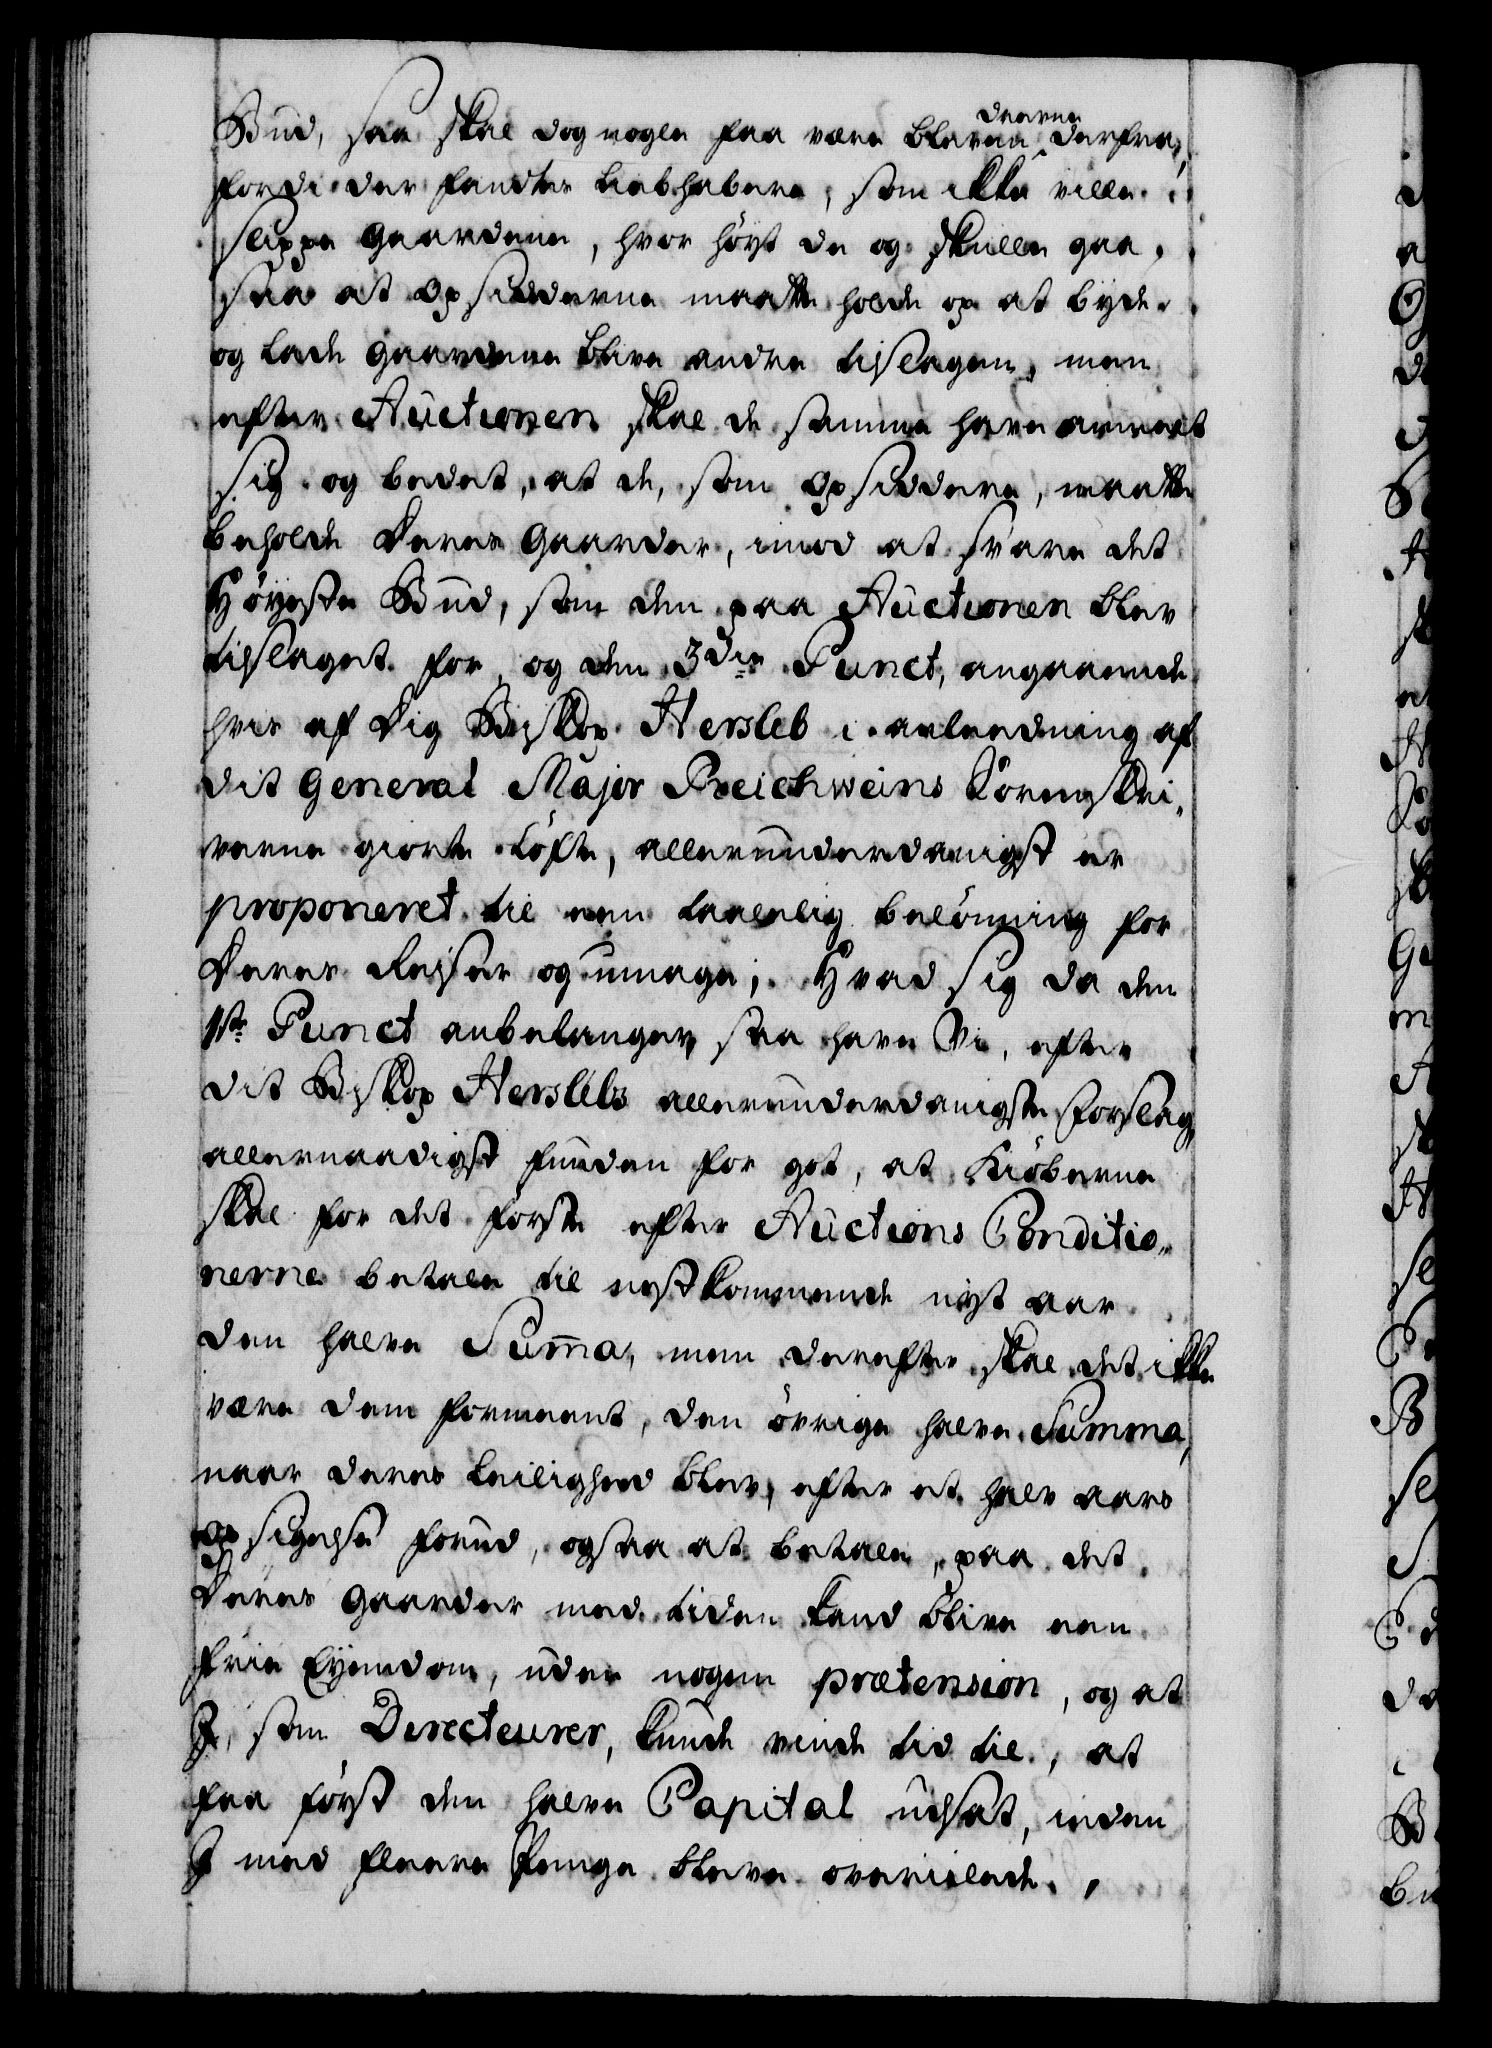 Bud, saa skal dog nogle faa være blevne dreven derfra,
fordi der fandtes Liebhabere, som ikke ville
slippe Gaardene, hvor höyt de og skulle gaa,
saa at Opsidderne maatte holde op at byde
og lade Gaardene blive andre tilslagen, men
efter Auctionen skal de samme have anmeldt
sig og bedet, at de, som Opsiddere, maatte
beholde deres Gaarder, imod at svare det
Höyeste Bud, som den paa Auctionen blev
tilslaget for, og den 3die Punct, angaaende
hvis af dig Biskop Hersleb i anledning af
dit General Major Reichweins Sorenskri-
verne giorte Löfte, allerunderdanigst er
proponeret til een taalelig belönning for
deres Reiser og umage; Hvad sig da den
1ste Punct anbelanger, saa have Vi, efter
dit Biskop Herslebs allerunderdanigste Forslag,
allernaadigst funden for got, at Kiöberne
skal for det förste efter Auctions Conditio-
nerne betale til nestkommende nyt aar
den halve Summa, men derefter skal det ikke
være dem formeent, den övrige halve Summa,
naar deres Leilighed blev, efter et halv aars
opsigelse forud, ogsaa at betale, paa det
deres Gaarder med tiden kand blive een
frie Eyendom, uden nogen prætension, og at
I, som Directeurer, kunde vinde tid til, at
faa först den halve Capital udsat, inden
I med fleere Penge bleve overilede,